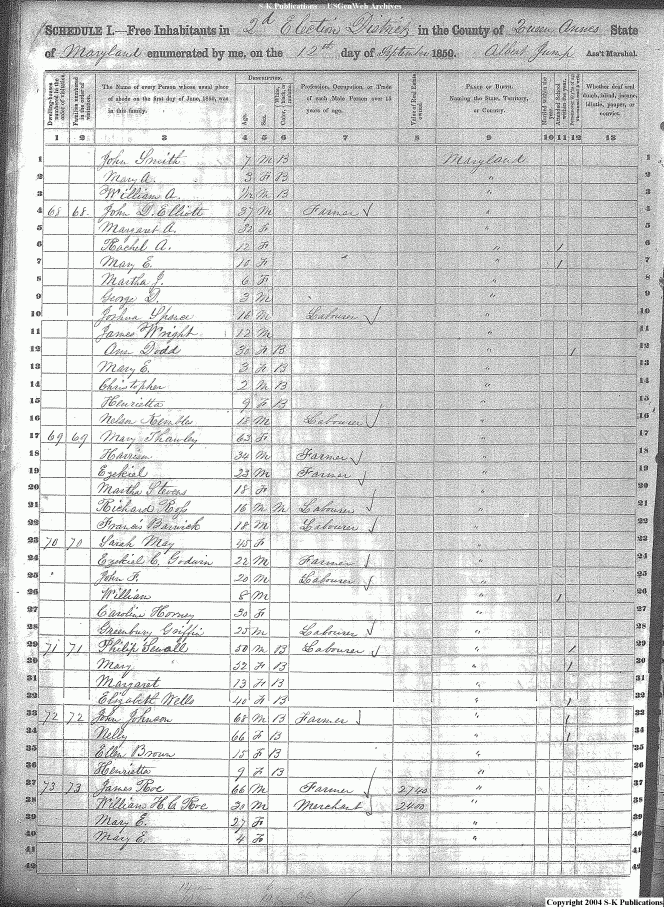 S-K Publications - USGenWeb Archives
SCHEDULE I.—Free Inhabitants in 2d Election District in the County of Queen Annes State
of Maryland enumerated by me, on the 12th day of September 1850. Albert Jump Ass't Marshal.
Dwelling-houses numbered in the order of visitation.
Families numbered in the order of visitation.
The Name of every Person whose usual place of abode on the first day of June, 1850, was in this family.
DESCRIPTION.
Age.
Sex.
White, black, or mulatto.
Profession, Occupation, or Trade of each Male Person over 15 years of age.
Value of Real Estate owned.
PLACE OF BIRTH.
Naming the State, Territory, or Country.
Married within the year.
Attended School within the year.
Whether deaf and dumb, blind, insane, idiotic, pauper, or convict.
1 2 3 4 5 6 7 8 9 10 11 12 13
1 John Smith 7 M B Maryland 1
2 Mary A. 3 F B " 2
3 William A. 1/2 M B " 3
4 68 68 John D. Elliott 37 M Farmer " 4
5 Margaret A. 32 F " 5
6 Rachel A. 12 F " 1 6
7 Mary E. 10 F " 1 7
8 Martha J. 6 F " 8
9 George D. 3 M " 9
10 Joshua Sparce 16 M Labourer " 10
11 James Wright 12 M " 11
12 Ann Dodd 30 F B " 1 12
13 Mary E. 3 F B " 13
14 Christopher 2 M B " 14
15 Henrietta 9 F B " 15
16 Nelson Kembles 18 M Labourer " 16
17 69 69 Mary Thawley 63 F " 17
18 Harrison 34 M Farmer " 18
19 Ezekiel 23 M Farmer " 19
20 Martha Stevens 18 F " 20
21 Richard Ross 16 M M Labourer " 21
22 Francis Barwick 18 M Labourer " 22
23 70 70 Sarah May 45 F " 23
24 Ezekiel C. Godwin 22 M Farmer " 24
25 John F. 20 M Labourer " 25
26 William 8 M " 1 26
27 Caroline Horney 30 F " 27
28 Greenbury Griffin 25 M Labourer " 28
29 71 71 Philip Sewall 50 M B Labourer " 1 29
30 Mary 52 F B " 1 30
31 Margaret 13 F B " 31
32 Elizabeth Wells 40 F B " 1 32
33 72 72 John Johnson 68 M B Farmer " 1 33
34 Nelly 66 F B " 1 34
35 Ellen Brown 15 F B " 35
36 Henrietta 9 F B " 36
37 73 73 James Roe 66 M Farmer 2740 " 37
38 William H. C. Roe 30 M Merchant 2400 " 38
39 Mary E. 27 F " 39
40 Mary E. 4 F " 40
41 41
42 42
Copyright 2004 S-K Publications